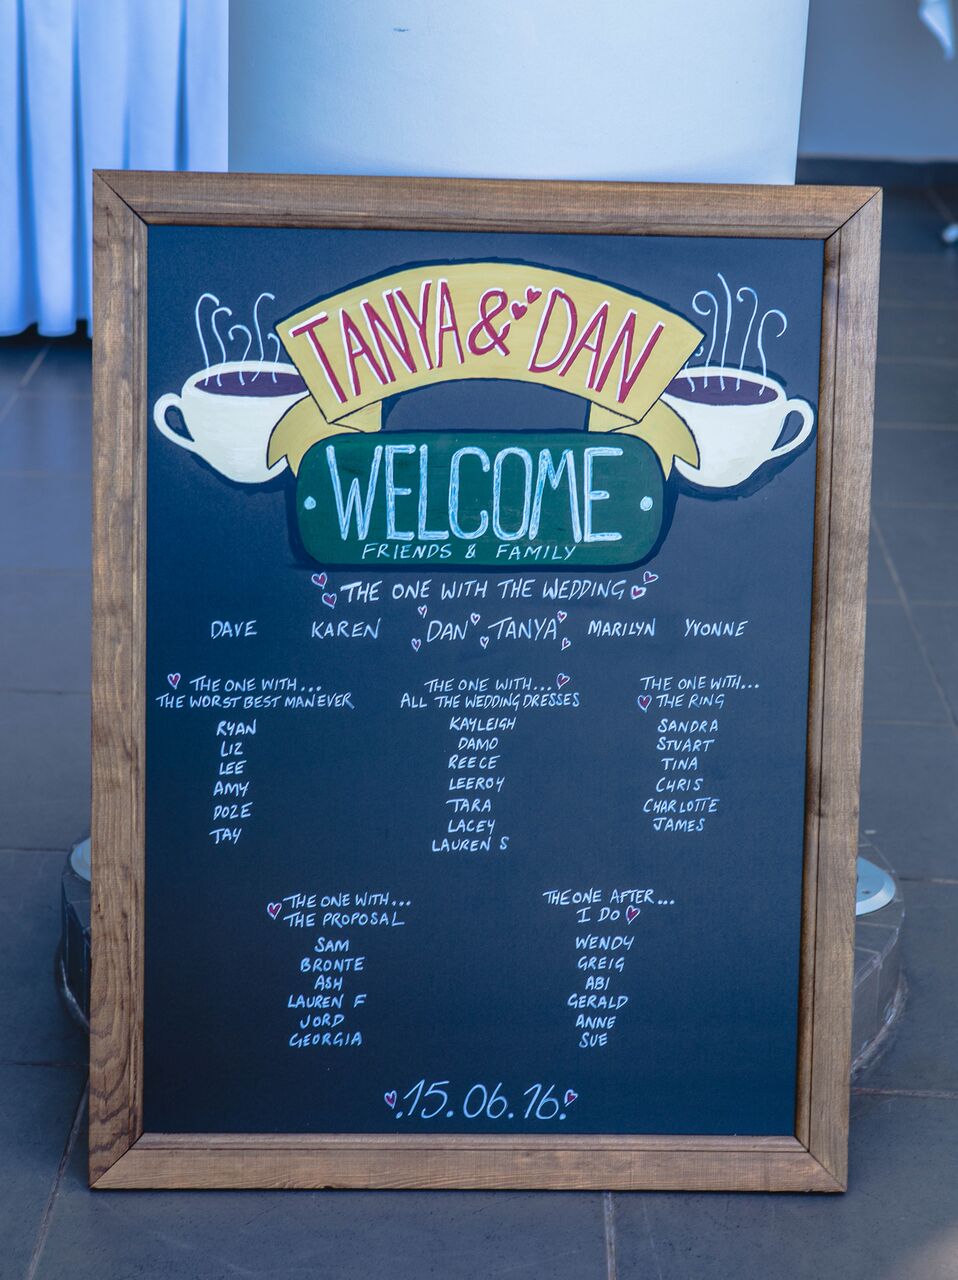 TANYA & DAN
WELCOME
FRIENDS & FAMILY
THE ONE WITH THE WEDDING
DAVE KAREN DAN TANYA MARILYN YVONNE
THE ONE WITH...
THE WORST BEST MAN EVER
RYAN
LIZ
LEE
AMY
DOZE
TAY
THE ONE WITH...
ALL THE WEDDING DRESSES
KAYLEIGH
DAMO
REECE
LEEROY
TARA
LACEY
LAUREN S
THE ONE WITH...
THE RING
SANDRA
STUART
TINA
CHRIS
CHARLOTTE
JAMES
THE ONE WITH...
THE PROPOSAL
SAM
BRONTE
ASH
LAUREN F
JORD
GEORGIA
THE ONE AFTER...
I DO
WENDY
GREIG
ABI
GERALD
ANNE
SUE
.15.06.16.